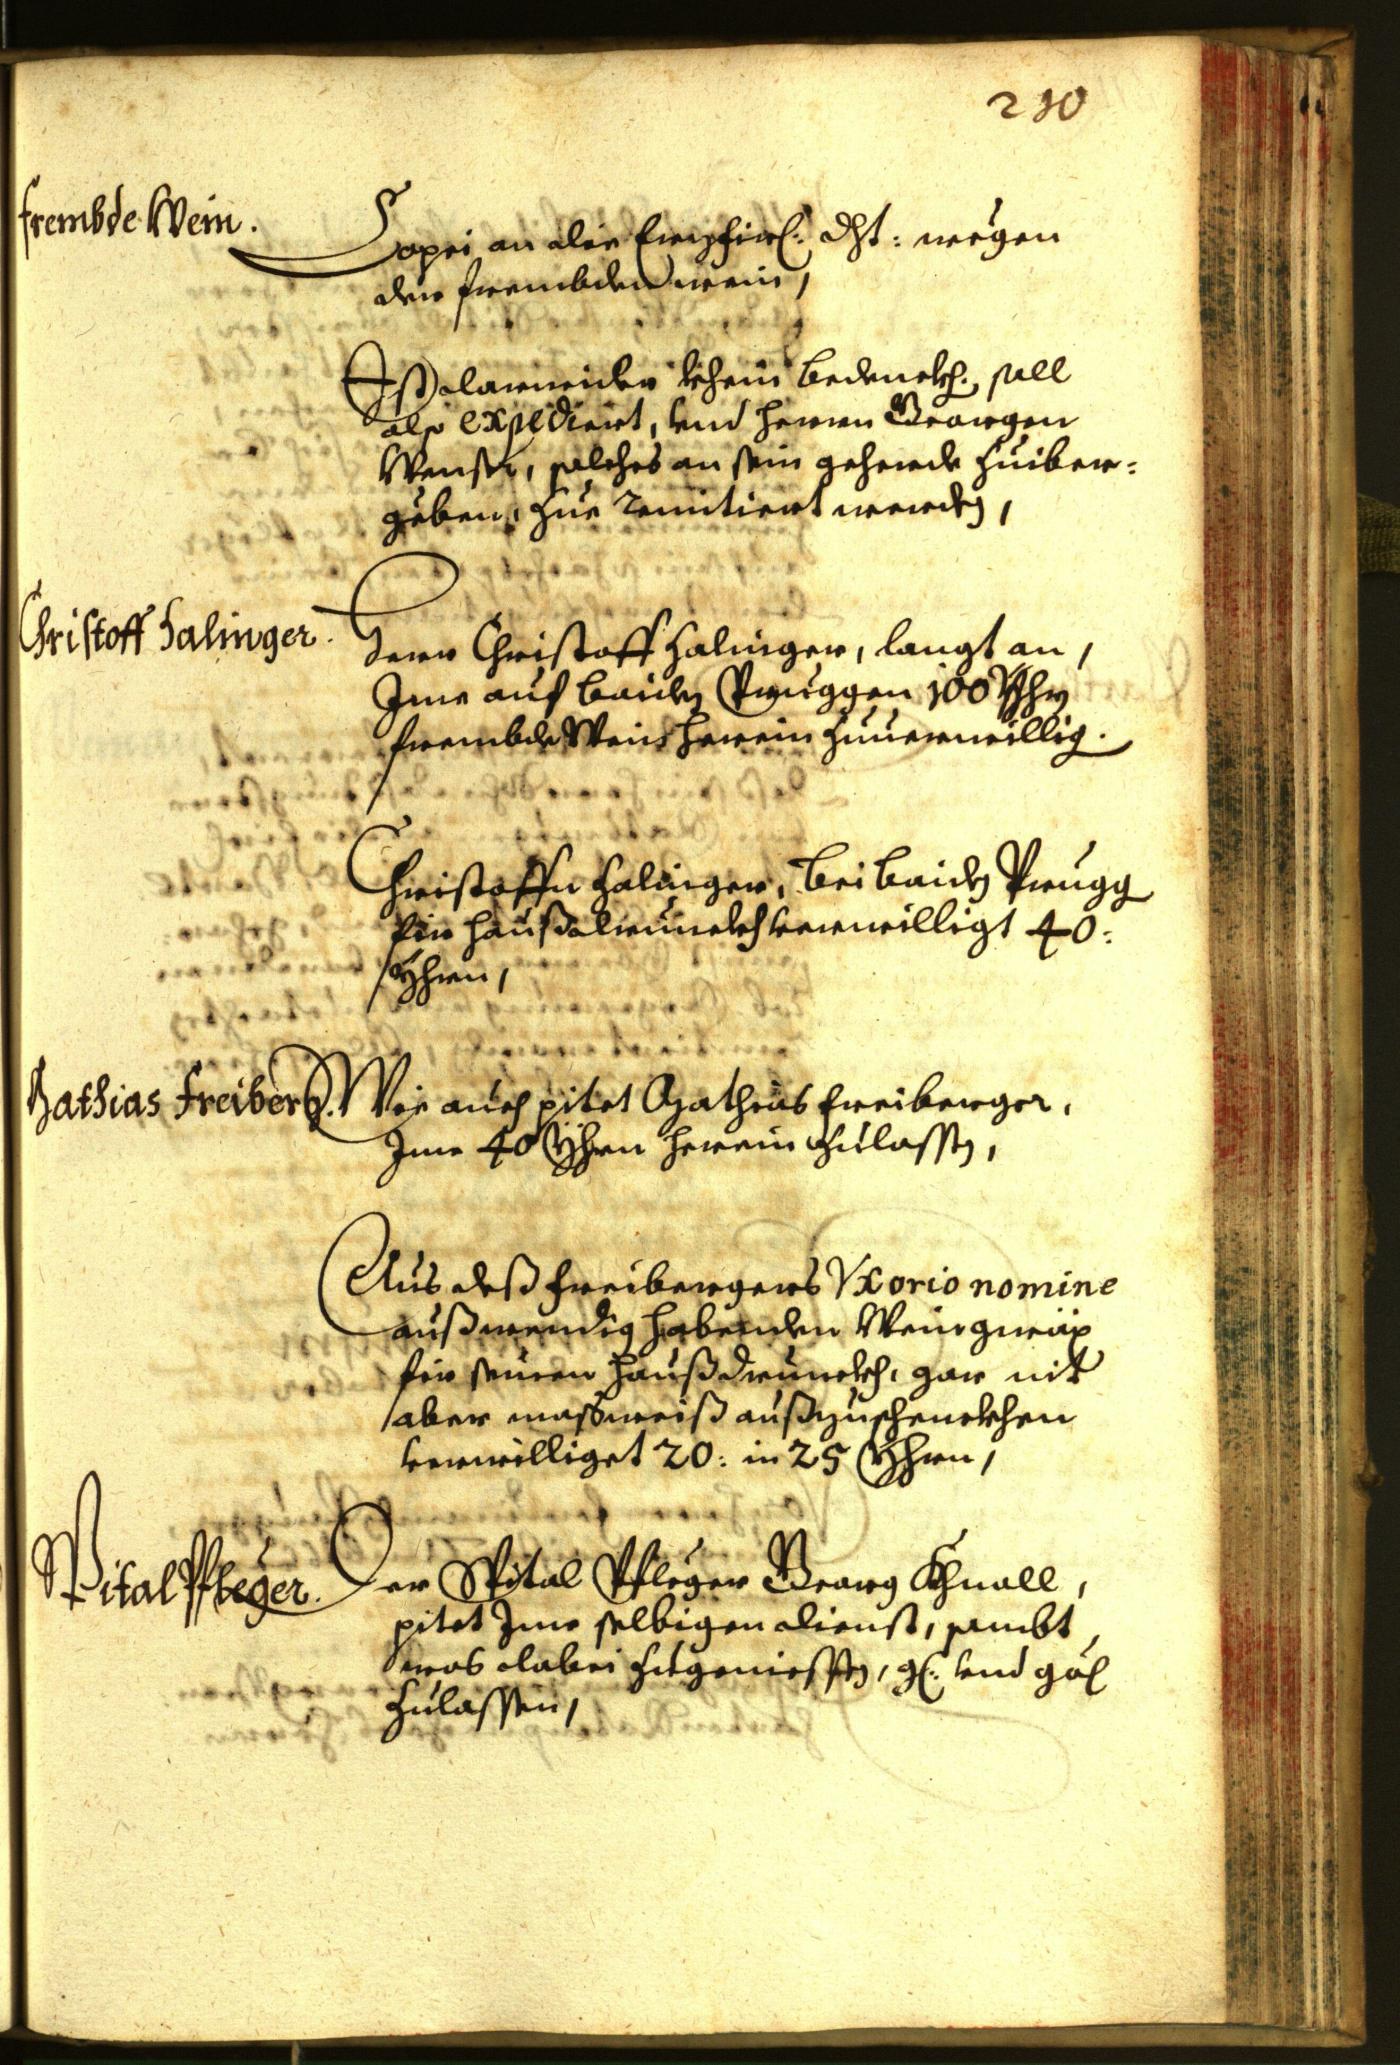 210
frembde Wein.
Copei an die Erzfirl: Dht: wegen
der frembden wein,
Ist darwider khein bedenckh. soll
also expediert, und herrn Georgen
Wenser, solches an sein gehende zuiber=
geben, zue remitiert werden,
Christoff Halinger.
Herr Christoff Halinger, langt an,
Ime auf baiden Pruggen 100 Yhrn
frembde Wein herein zuuerwillig.
Christoffn Halinger, bei baiden Prugg
fir haußdrunckh verwilligt 40:
Yhren,
Mathias Freiberg.
Wie auch pitet Mathias Freiberger,
Ime 40 Yhren herein zulassen,
Aus deß Freibergers Vxorio nomine
außwendig habenden Weingneüß
fir seinen haußdrunckh, gar nit
aber massweiß außzuschenckhen
verwilliget 20: in 25 Yhren,
Spital Pfleger.
Der Spital Pfleger Georg Khnoll,
pitet Ime selbigen dienst, sambt
was dabei zugeniessen, gl: und gol
zulassen,